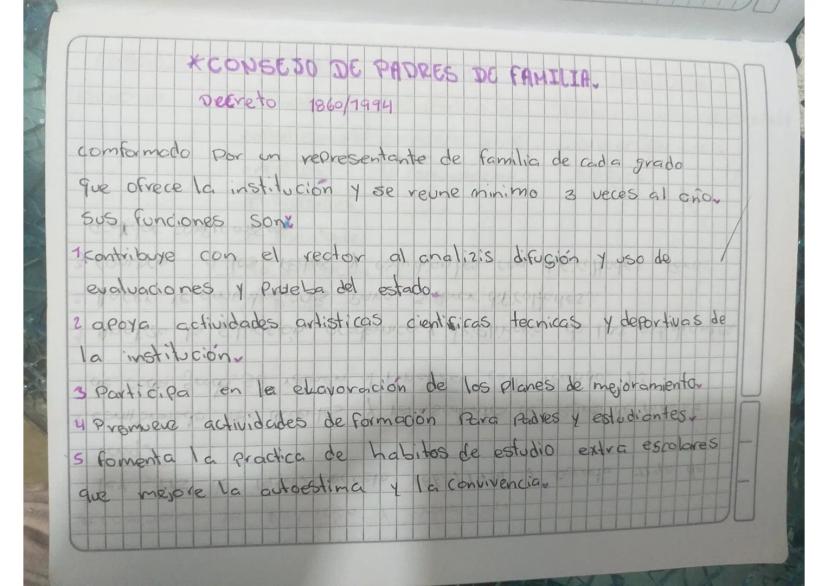 *CONSEJO DE PADRES DE FAMILIA.
Decreto 1860/1994
comformado por un representante de familia de cada grado
que ofrece la institución y se reune minimo 3 veces al año.
sus funciones son:
1 contribuye con el rector al analizis difusión y uso de
evaluaciones y prueba del estado.
2 apoya actividades artisticas cientificas tecnicas y deportivas de
la institución.
3 Participa en la elavoración de los planes de mejoramiento.
4 Promueve actividades de formación para padres y estudiantes.
5 fomenta la practica de habitos de estudio extra escolares
que mejore la autoestima y la convivencia.